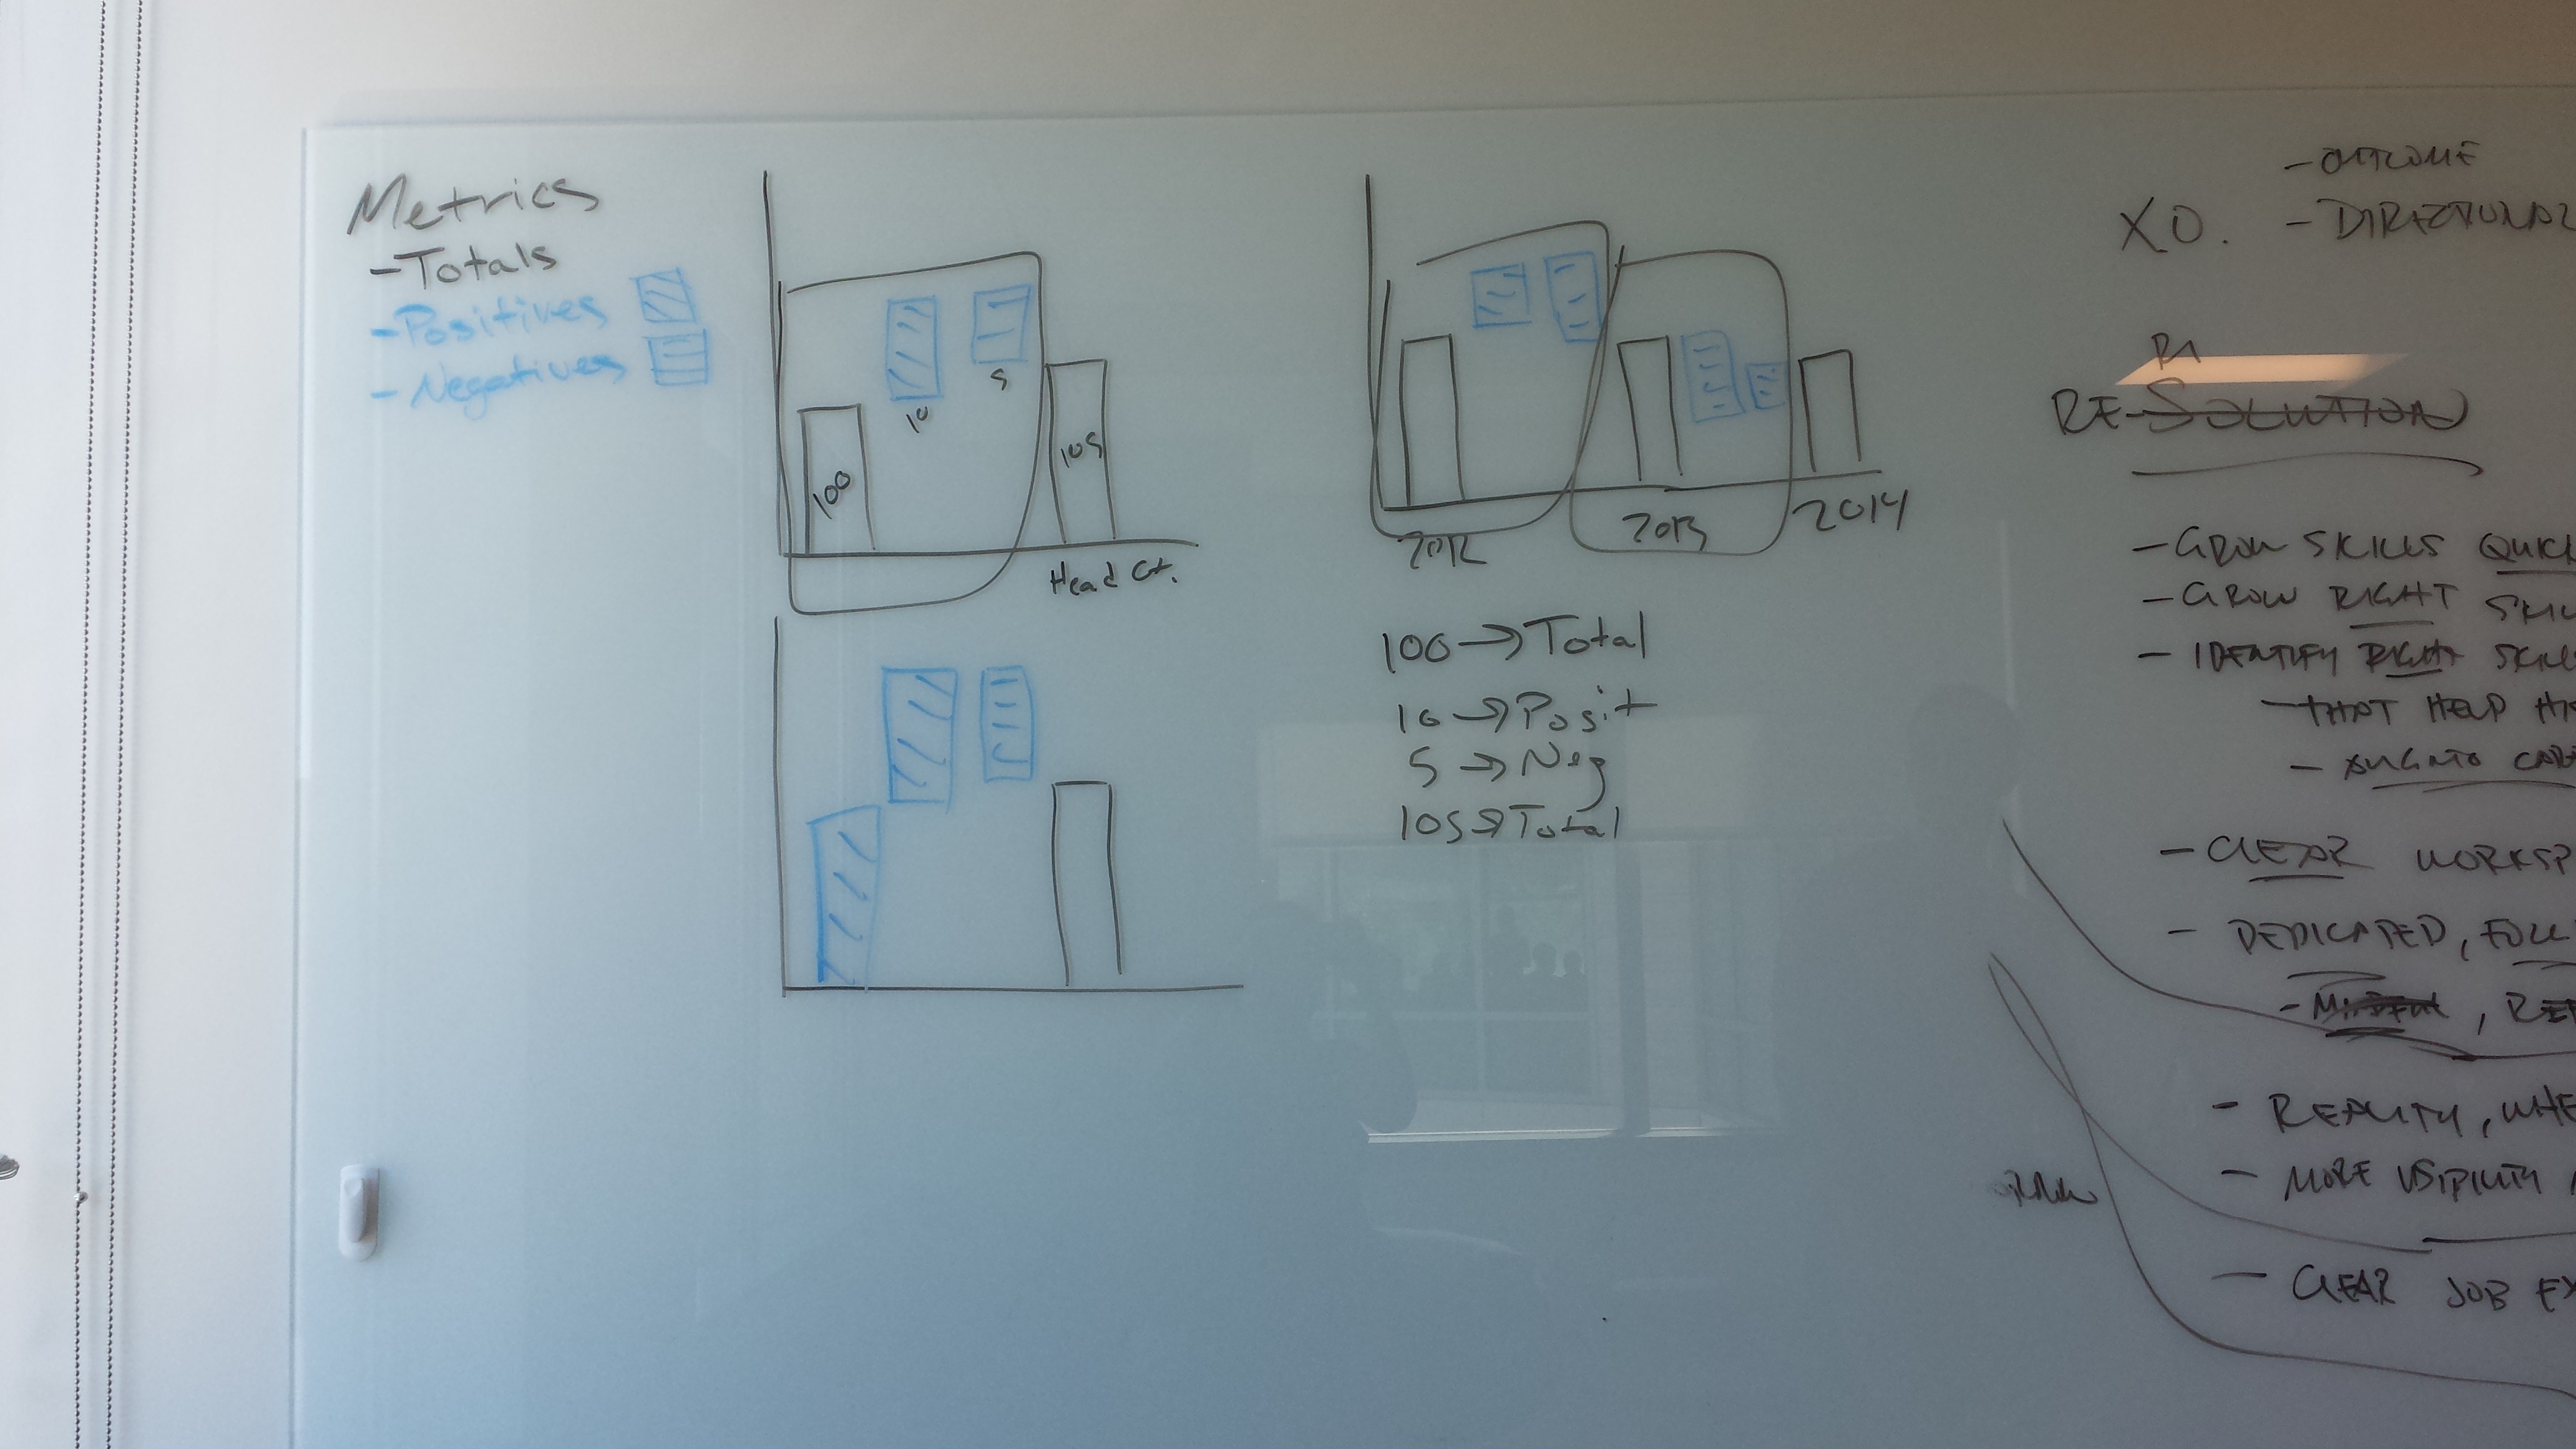 Metrics
-Totals
-Positives
-Negatives
100
10
5
105
Head Ct.
2012
2013
2014
100→Total
10→Posit
5→Neg
105→Total
-OUTCOME
XO. -DIRECTIONAL
RE-SOLUTION
-GROW SKILLS
-GROW RIGHT
-IDENTIFY RIGHT
-THAT HELP
-CLEAR
-DEDICATED,
-REALITY,
-MORE VISIBILITY
-CLEAR JOB